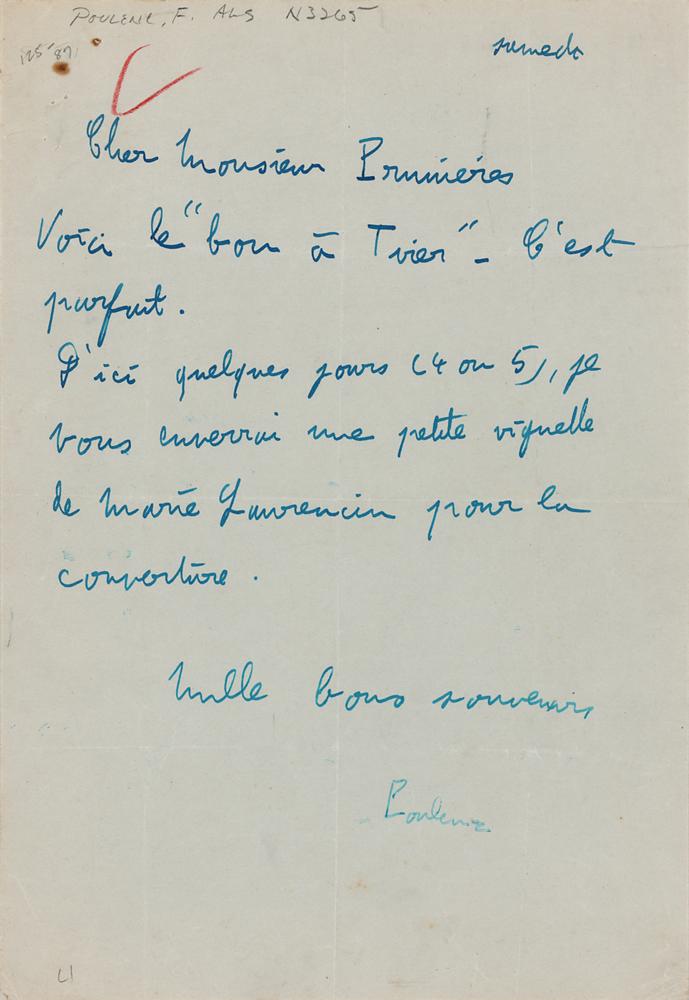 POULENC, F. ALS N3265
125-87
samedi
Cher Monsieur Prunières
Voici le "bon à Tirer" - C'est
parfait.
D'ici quelques jours (4 ou 5), je
vous enverrai une petite vignette
de Marie Laurencin pour la
couverture.
Mille bons souvenirs
Poulenc